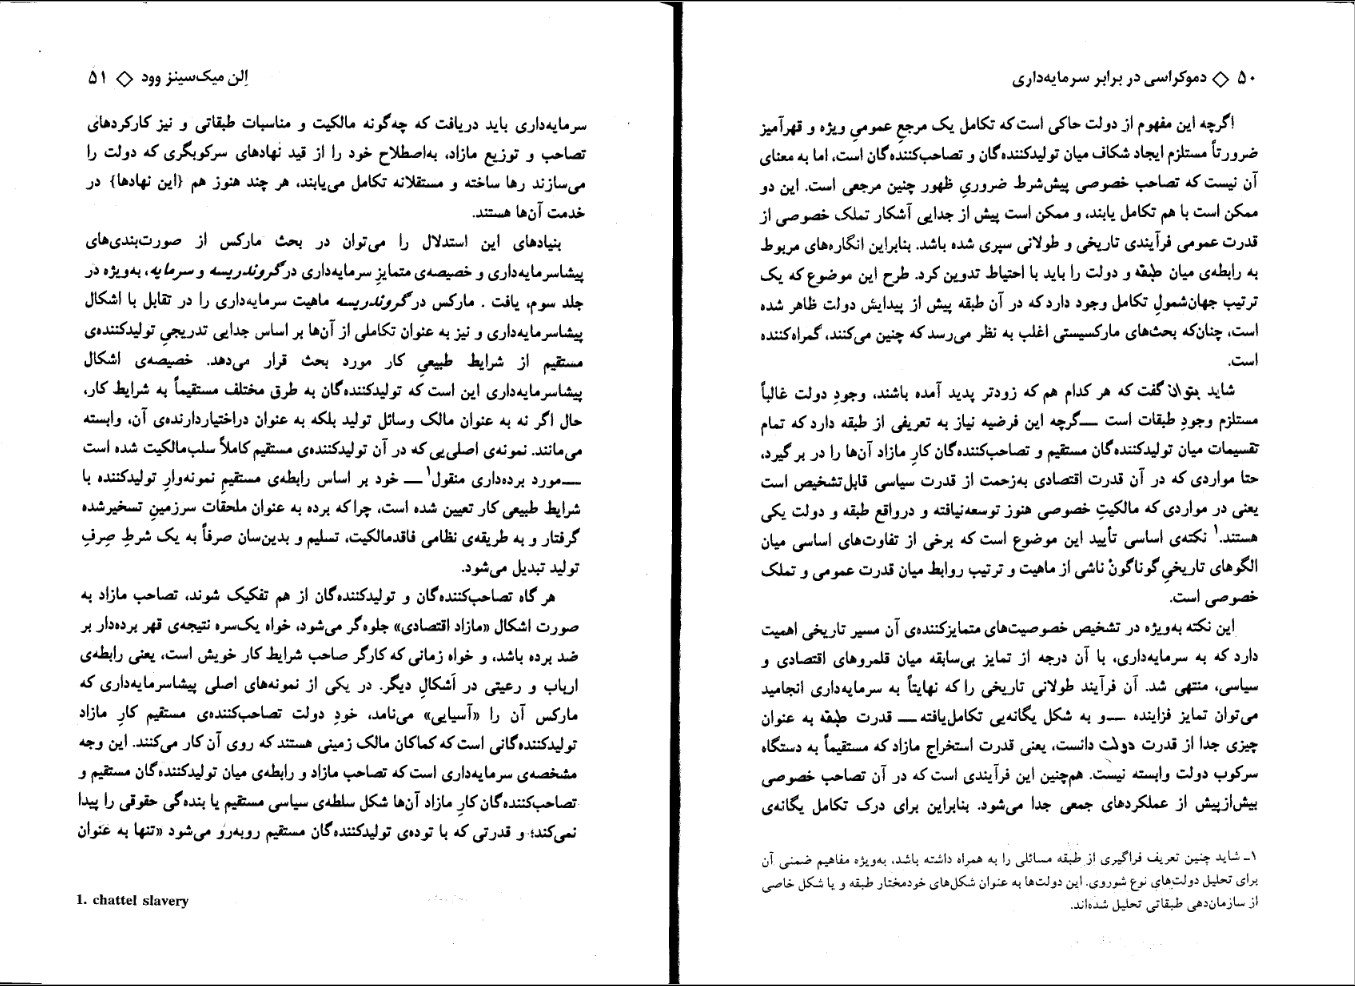 ۵۰ ◇ دموکراسی در برابر سرمایه‌داری
اگرچه این مفهوم از دولت حاکی است که تکامل یک مرجعِ عمومیِ ویژه و قهرآمیز
ضرورتاً مستلزم ایجاد شکاف میان تولیدکننده‌گان و تصاحب‌کننده‌گان است، اما به معنای
آن نیست که تصاحب خصوصی پیش‌شرط ضروریِ ظهور چنین مرجعی است. این دو
ممکن است با هم تکامل یابند، و ممکن است پیش از جدایی آشکار تملک خصوصی از
قدرت عمومی فرآیندی تاریخی و طولانی سپری شده باشد. بنابراین انگاره‌های مربوط
به رابطه‌ی میان طبقه و دولت را باید با احتیاط تدوین کرد. طرح این موضوع که یک
ترتیب جهان‌شمولِ تکامل وجود دارد که در آن طبقه پیش از پیدایش دولت ظاهر شده
است، چنان‌که بحث‌های مارکسیستی اغلب به نظر می‌رسد که چنین می‌کنند، گمراه‌کننده
است.
شاید بتوان گفت که هر کدام هم که زودتر پدید آمده باشند، وجودِ دولت غالباً
مستلزم وجودِ طبقات است ــ گرچه این فرضیه نیاز به تعریفی از طبقه دارد که تمام
تقسیمات میان تولیدکننده‌گان مستقیم و تصاحب‌کننده‌گان کارِ مازاد آن‌ها را در بر گیرد،
حتا مواردی که در آن قدرت اقتصادی به‌زحمت از قدرت سیاسی قابل‌تشخیص است
یعنی در مواردی که مالکیتِ خصوصی هنوز توسعه‌نیافته و درواقع طبقه و دولت یکی
هستند.۱ نکته‌ی اساسی تأیید این موضوع است که برخی از تفاوت‌های اساسی میان
الگوهای تاریخیِ گوناگونْ ناشی از ماهیت و ترتیب روابط میان قدرت عمومی و تملک
خصوصی است.
این نکته به‌ویژه در تشخیص خصوصیت‌های متمایزکننده‌ی آن مسیر تاریخی اهمیت
دارد که به سرمایه‌داری، با آن درجه از تمایز بی‌سابقه میان قلمروهای اقتصادی و
سیاسی، منتهی شد. آن فرآیند طولانی تاریخی را که نهایتاً به سرمایه‌داری انجامید
می‌توان تمایز فزاینده ــ و به شکل یگانه‌یی تکامل‌یافته ــ قدرت طبقه به عنوان
چیزی جدا از قدرت دولت دانست، یعنی قدرت استخراج مازاد که مستقیماً به دستگاه
سرکوب دولت وابسته نیست. هم‌چنین این فرآیندی است که در آن تصاحب خصوصی
بیش‌ازپیش از عملکردهای جمعی جدا می‌شود. بنابراین برای درک تکامل یگانه‌ی
۱ـ شاید چنین تعریف فراگیری از طبقه مسائلی را به همراه داشته باشد، به‌ویژه مفاهیم ضمنی آن
برای تحلیل دولت‌های نوع شوروی. این دولت‌ها به عنوان شکل‌های خودمختار طبقه و یا شکل خاصی
از سازمان‌دهی طبقاتی تحلیل شده‌اند.
اِلن میک‌سینز وود ◇ ۵۱
سرمایه‌داری باید دریافت که چه‌گونه مالکیت و مناسبات طبقاتی و نیز کارکردهای
تصاحب و توزیع مازاد، به‌اصطلاح خود را از قید نهادهای سرکوبگری که دولت را
می‌سازند رها ساخته و مستقلانه تکامل می‌یابند، هر چند هنوز هم {این نهادها} در
خدمت آن‌ها هستند.
بنیادهای این استدلال را می‌توان در بحث مارکس از صورت‌بندی‌های
پیشاسرمایه‌داری و خصیصه‌ی متمایزِ سرمایه‌داری در گروندریسه و سرمایه، به‌ویژه در
جلد سوم، یافت . مارکس در گروندریسه ماهیت سرمایه‌داری را در تقابل با اشکال
پیشاسرمایه‌داری و نیز به عنوان تکاملی از آن‌ها بر اساس جدایی تدریجیِ تولیدکننده‌ی
مستقیم از شرایط طبیعیِ کار مورد بحث قرار می‌دهد. خصیصه‌ی اشکال
پیشاسرمایه‌داری این است که تولیدکننده‌گان به طرق مختلف مستقیماً به شرایط کار،
حال اگر نه به عنوان مالک وسائل تولید بلکه به عنوان دراختیاردارنده‌ی آن، وابسته
می‌مانند. نمونه‌ی اصلی‌یی که در آن تولیدکننده‌ی مستقیم کاملاً سلب‌مالکیت شده است
ــ مورد برده‌داری منقول۱ ــ خود بر اساس رابطه‌ی مستقیمِ نمونه‌وارِ تولیدکننده با
شرایط طبیعی کار تعیین شده است، چراکه برده به عنوان ملحقات سرزمینِ تسخیرشده
گرفتار و به طریقه‌ی نظامی فاقدمالکیت، تسلیم و بدین‌سان صرفاً به یک شرطِ صِرفِ
تولید تبدیل می‌شود.
هر گاه تصاحب‌کننده‌گان و تولیدکننده‌گان از هم تفکیک شوند، تصاحب مازاد به
صورت اشکال «مازاد اقتصادی» جلوه‌گر می‌شود، خواه یک‌سره نتیجه‌ی قهر برده‌دار بر
ضد برده باشد، و خواه زمانی که کارگر صاحب شرایط کار خویش است، یعنی رابطه‌ی
ارباب و رعیتی در اَشکالِ دیگر. در یکی از نمونه‌های اصلی پیشاسرمایه‌داری که
مارکس آن را «آسیایی» می‌نامد، خودِ دولت تصاحب‌کننده‌ی مستقیم کارِ مازاد
تولیدکننده‌گانی است که کماکان مالک زمینی هستند که روی آن کار می‌کنند. این وجه
مشخصه‌ی سرمایه‌داری است که تصاحب مازاد و رابطه‌ی میان تولیدکننده‌گان مستقیم و
تصاحب‌کننده‌گان کارِ مازاد آن‌ها شکل سلطه‌ی سیاسی مستقیم یا بنده‌گی حقوقی را پیدا
نمی‌کند؛ و قدرتی که با توده‌ی تولیدکننده‌گان مستقیم روبه‌رو می‌شود «تنها به عنوان
1. chattel slavery